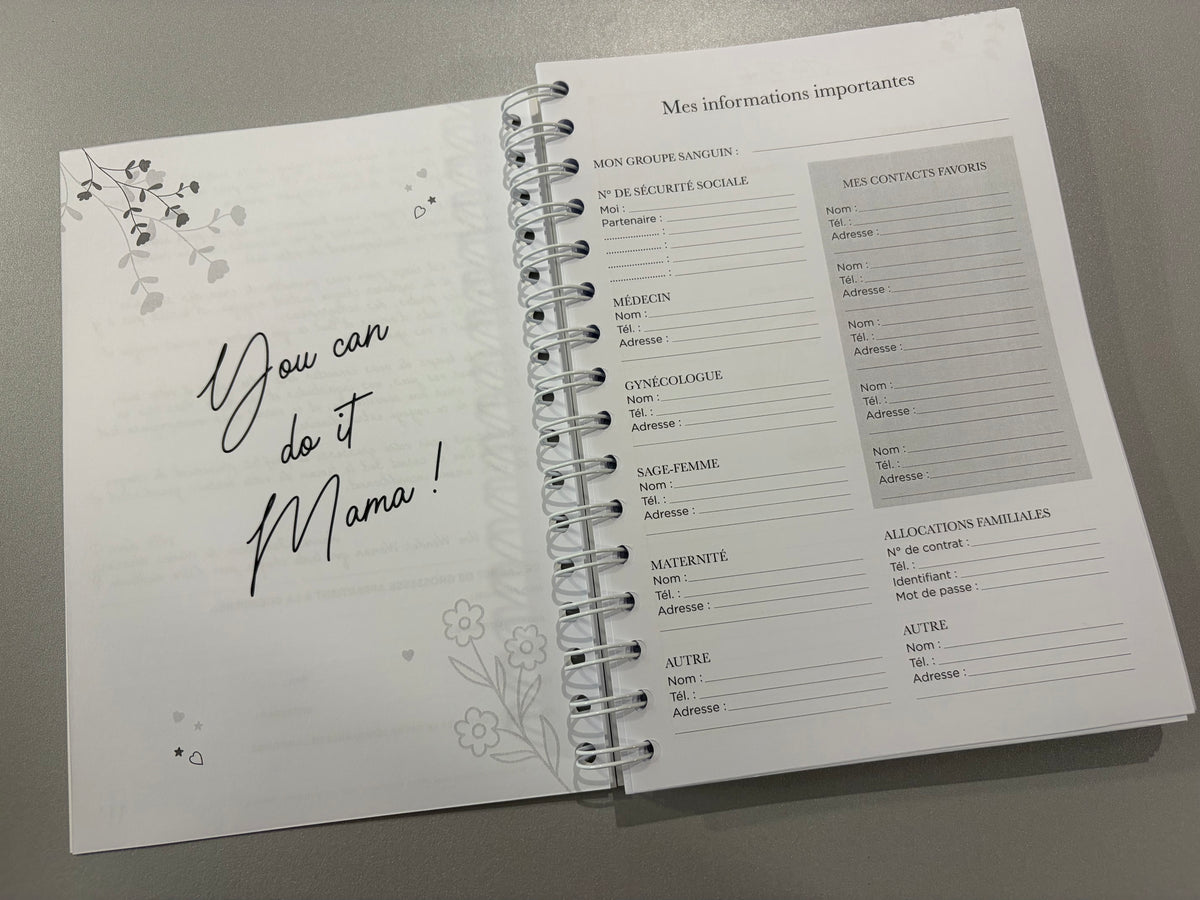 You can
do it
Mama !
Mes informations importantes
MON GROUPE SANGUIN :
N° DE SÉCURITÉ SOCIALE
Moi :
Partenaire :
..................... :
..................... :
..................... :
..................... :
MÉDECIN
Nom :
Tél. :
Adresse :
GYNÉCOLOGUE
Nom :
Tél. :
Adresse :
SAGE-FEMME
Nom :
Tél. :
Adresse :
MATERNITÉ
Nom :
Tél. :
Adresse :
AUTRE
Nom :
Tél. :
Adresse :
MES CONTACTS FAVORIS
Nom :
Tél. :
Adresse :
Nom :
Tél. :
Adresse :
Nom :
Tél. :
Adresse :
Nom :
Tél. :
Adresse :
Nom :
Tél. :
Adresse :
ALLOCATIONS FAMILIALES
N° de contrat :
Tél. :
Identifiant :
Mot de passe :
AUTRE
Nom :
Tél. :
Adresse :